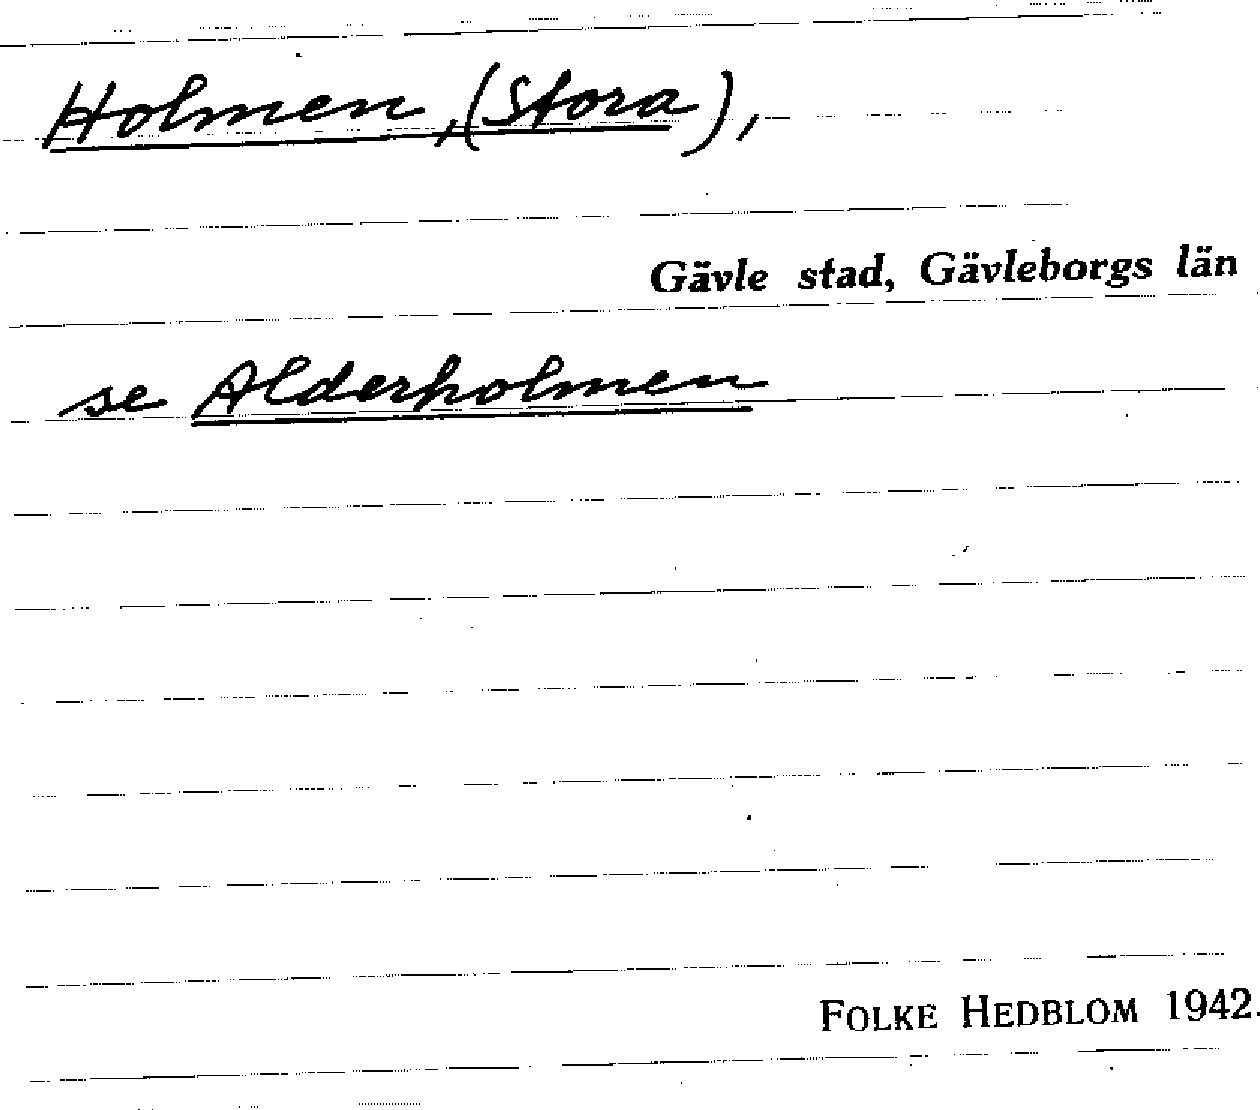 Holmen, (Stora),
Gävle stad, Gävleborgs län
se Alderholmen
FOLKE HEDBLOM 1942.